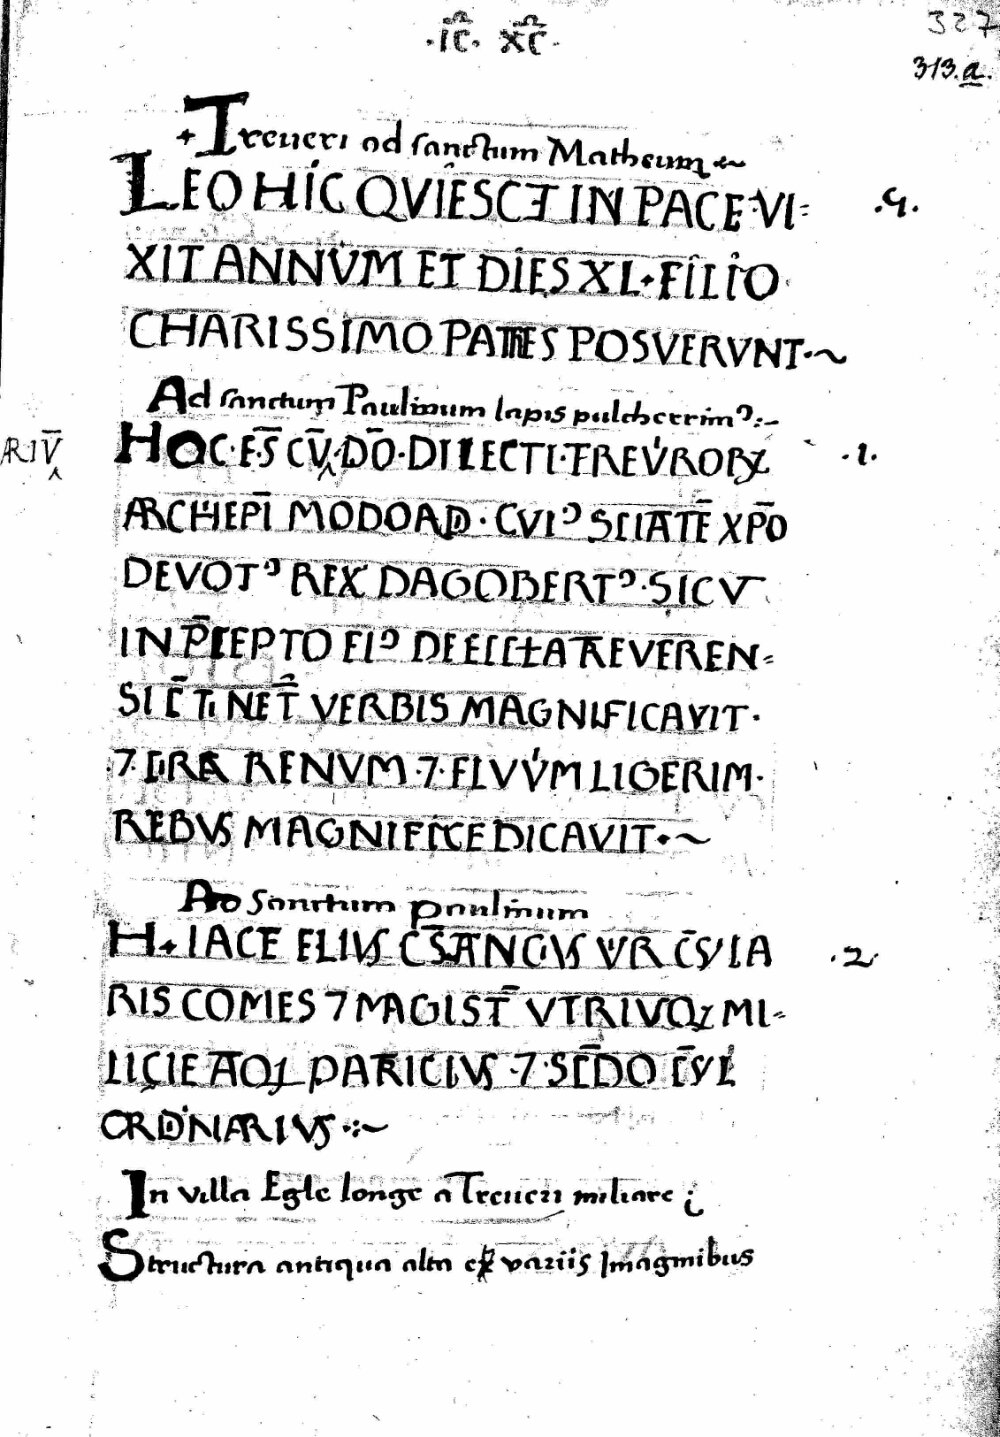 ·IC· XC·
327
313.a.
+ Treueri ad sanctum Matheum
LEO HIC QVIESCET IN PACE·VI= ·9·
XIT ANNVM ET DIES XL·FILIO
CHARISSIMO PATRES POSVERVNT·~
Ad sanctum Paulinum lapis pulcherrimꝰ:-
ARIV̄ HOC·ES̄ CV̄·DŌ·DILECTI·TREVIRORꝜ ·1·
ARCHIEPĪ MODOARD·CVIꝰ SCIATĒ XPŌ
DEVOTꝰ REX DAGOBERTꝰ·SICV
IN P̄CEPTO EIꝰ DE REVEREN=
VERBIS MAGNIFICAVIT·
·7· RENVM·7·FLVVIVM LIGERIM·
REBVS MAGNIFICE DICAVIT·~
AD Sanctum paulinum
H+ IACE FLIVS VIR CS̄VLA ·2·
RIS COMES 7 MAGIST̄ VTRIVSQꝫ MI=
LICIE ATQꝫ PATRICIVS·7·SECDO CŌSVL
ORDINARIVS·:~
In villa Egle longe a Treueri miliare i
Structura antiqua alta ex variis Imaginibus